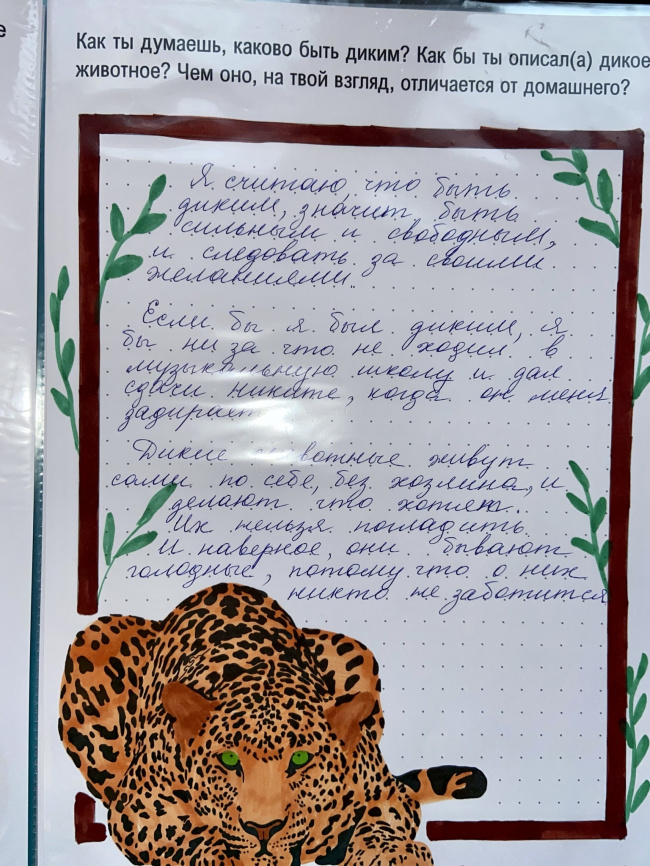 е
Как ты думаешь, каково быть диким? Как бы ты описал(а) дикое
животное? Чем оно, на твой взгляд, отличается от домашнего?
Я считаю, что быть
диким, значит быть
сильным и свободным,
и следовать за своими
желаниями.
Если бы я был диким, я
бы ни за что не ходил в
музыкальную школу и дал
сдачи Никите, когда он меня
задирает
Дикие животные живут
сами по себе, без хозяина, и
делают что хотят.
Их нельзя погладить.
И наверное, они бывают
голодные, потому что о них
никто не заботится